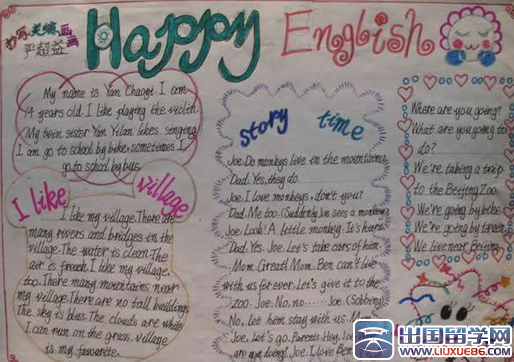 Happy English
抄写、美编、画画
严超益
My name is Yan Chaoyi. I am
14 years old. I like playing the violin.
My twin sister Yan Yilan likes singing
I am go to school by bike, sometimes I
go to school by bus.
I like village
I like my village. There are
many rivers and bridges in the
village. The water is clean. The
air is freach. I like my village,
too. There many mountains near
my village. There are no tall buildings
The sky is blus. The clouds are white
I can run on the grass. village
is my favorete.
story time
Joe: Do monkeys live in the mountains
Dad: Yes, they do.
Joe: I love monkeys, don't you?
Dad: Me too. (Suddenly Joe sees a monkey
Joe: Look! A little monkey. It's hurt
Dad: Yes. Joe. Let's take cars of him.
Mom: Great! Mom. Ben can't live
with us for ever. Let's give it to the
zoo. Joe: No, no...... Joe (Sobbing)
No, let him stay with us. Mom
Joe, let's go. Parents: Hey, Joe
are you doing? Joe: I love Ben
Where are you going?
What are you going to
do?
We're taking a trip
to the Beijing Zoo.
We're going by bike.
We're going by treen.
We live near Beijing
出国留学网
WWW.LIUXUE86.COM